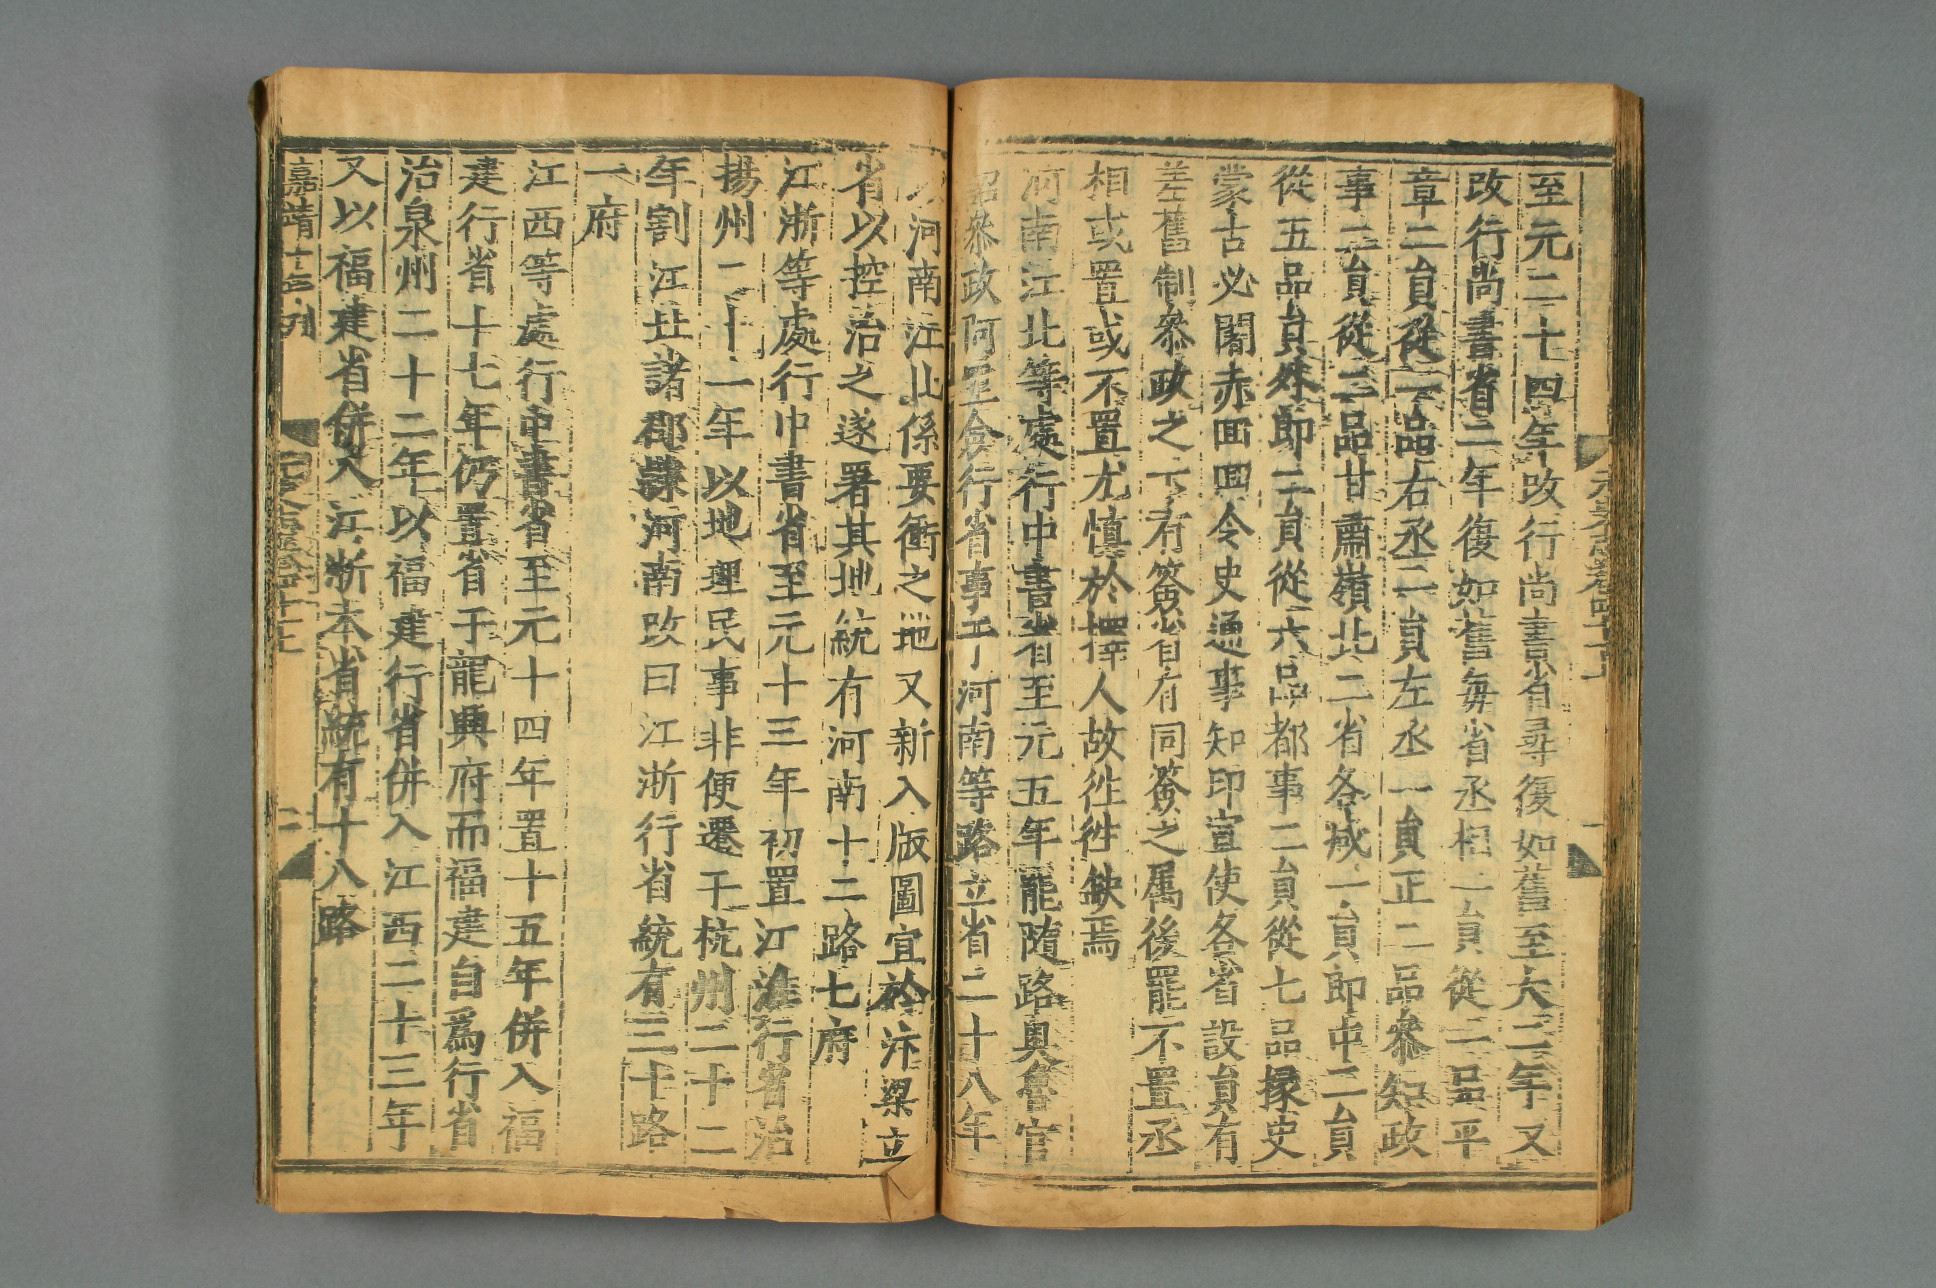 元史志卷四十一上
一
至元二十四年改行尚書省尋復如舊至大二年又
改行尚書省二年復如舊每省丞相一員從一品平
章二員從一品右丞一員左丞一員正二品參知政
事二員從二品甘肅嶺北二省各減一員郎中二員
從五品員外郎二員從六品都事二員從七品掾史
蒙古必闍赤回回令史通事知印宣使各省設員有
差舊制參政之下有簽省有同簽之属後罷不置丞
相或置或不置尤慎於擇人故徃徃缺焉
河南江北等處行中書省至元五年罷隨路奥魯官
詔參政阿里僉行省事于河南等路立省二十八年
以河南江北係要衝之地又新入版圖宜於汴梁立
省以控治之遂署其地統有河南十二路七府
江浙等處行中書省至元十三年初置江淮行省治
揚州二十一年以地理民事非便遷于杭州二十二
年割江北諸郡隸河南改曰江浙行省統有三十路
一府
江西等處行中書省至元十四年置十五年併入福
建行省十七年仍置省于龍興府而福建自爲行省
治泉州二十二年以福建行省併入江西二十三年
又以福建省併入江浙本省統有十八路
嘉靖十年刊
元史志卷四十一上
二